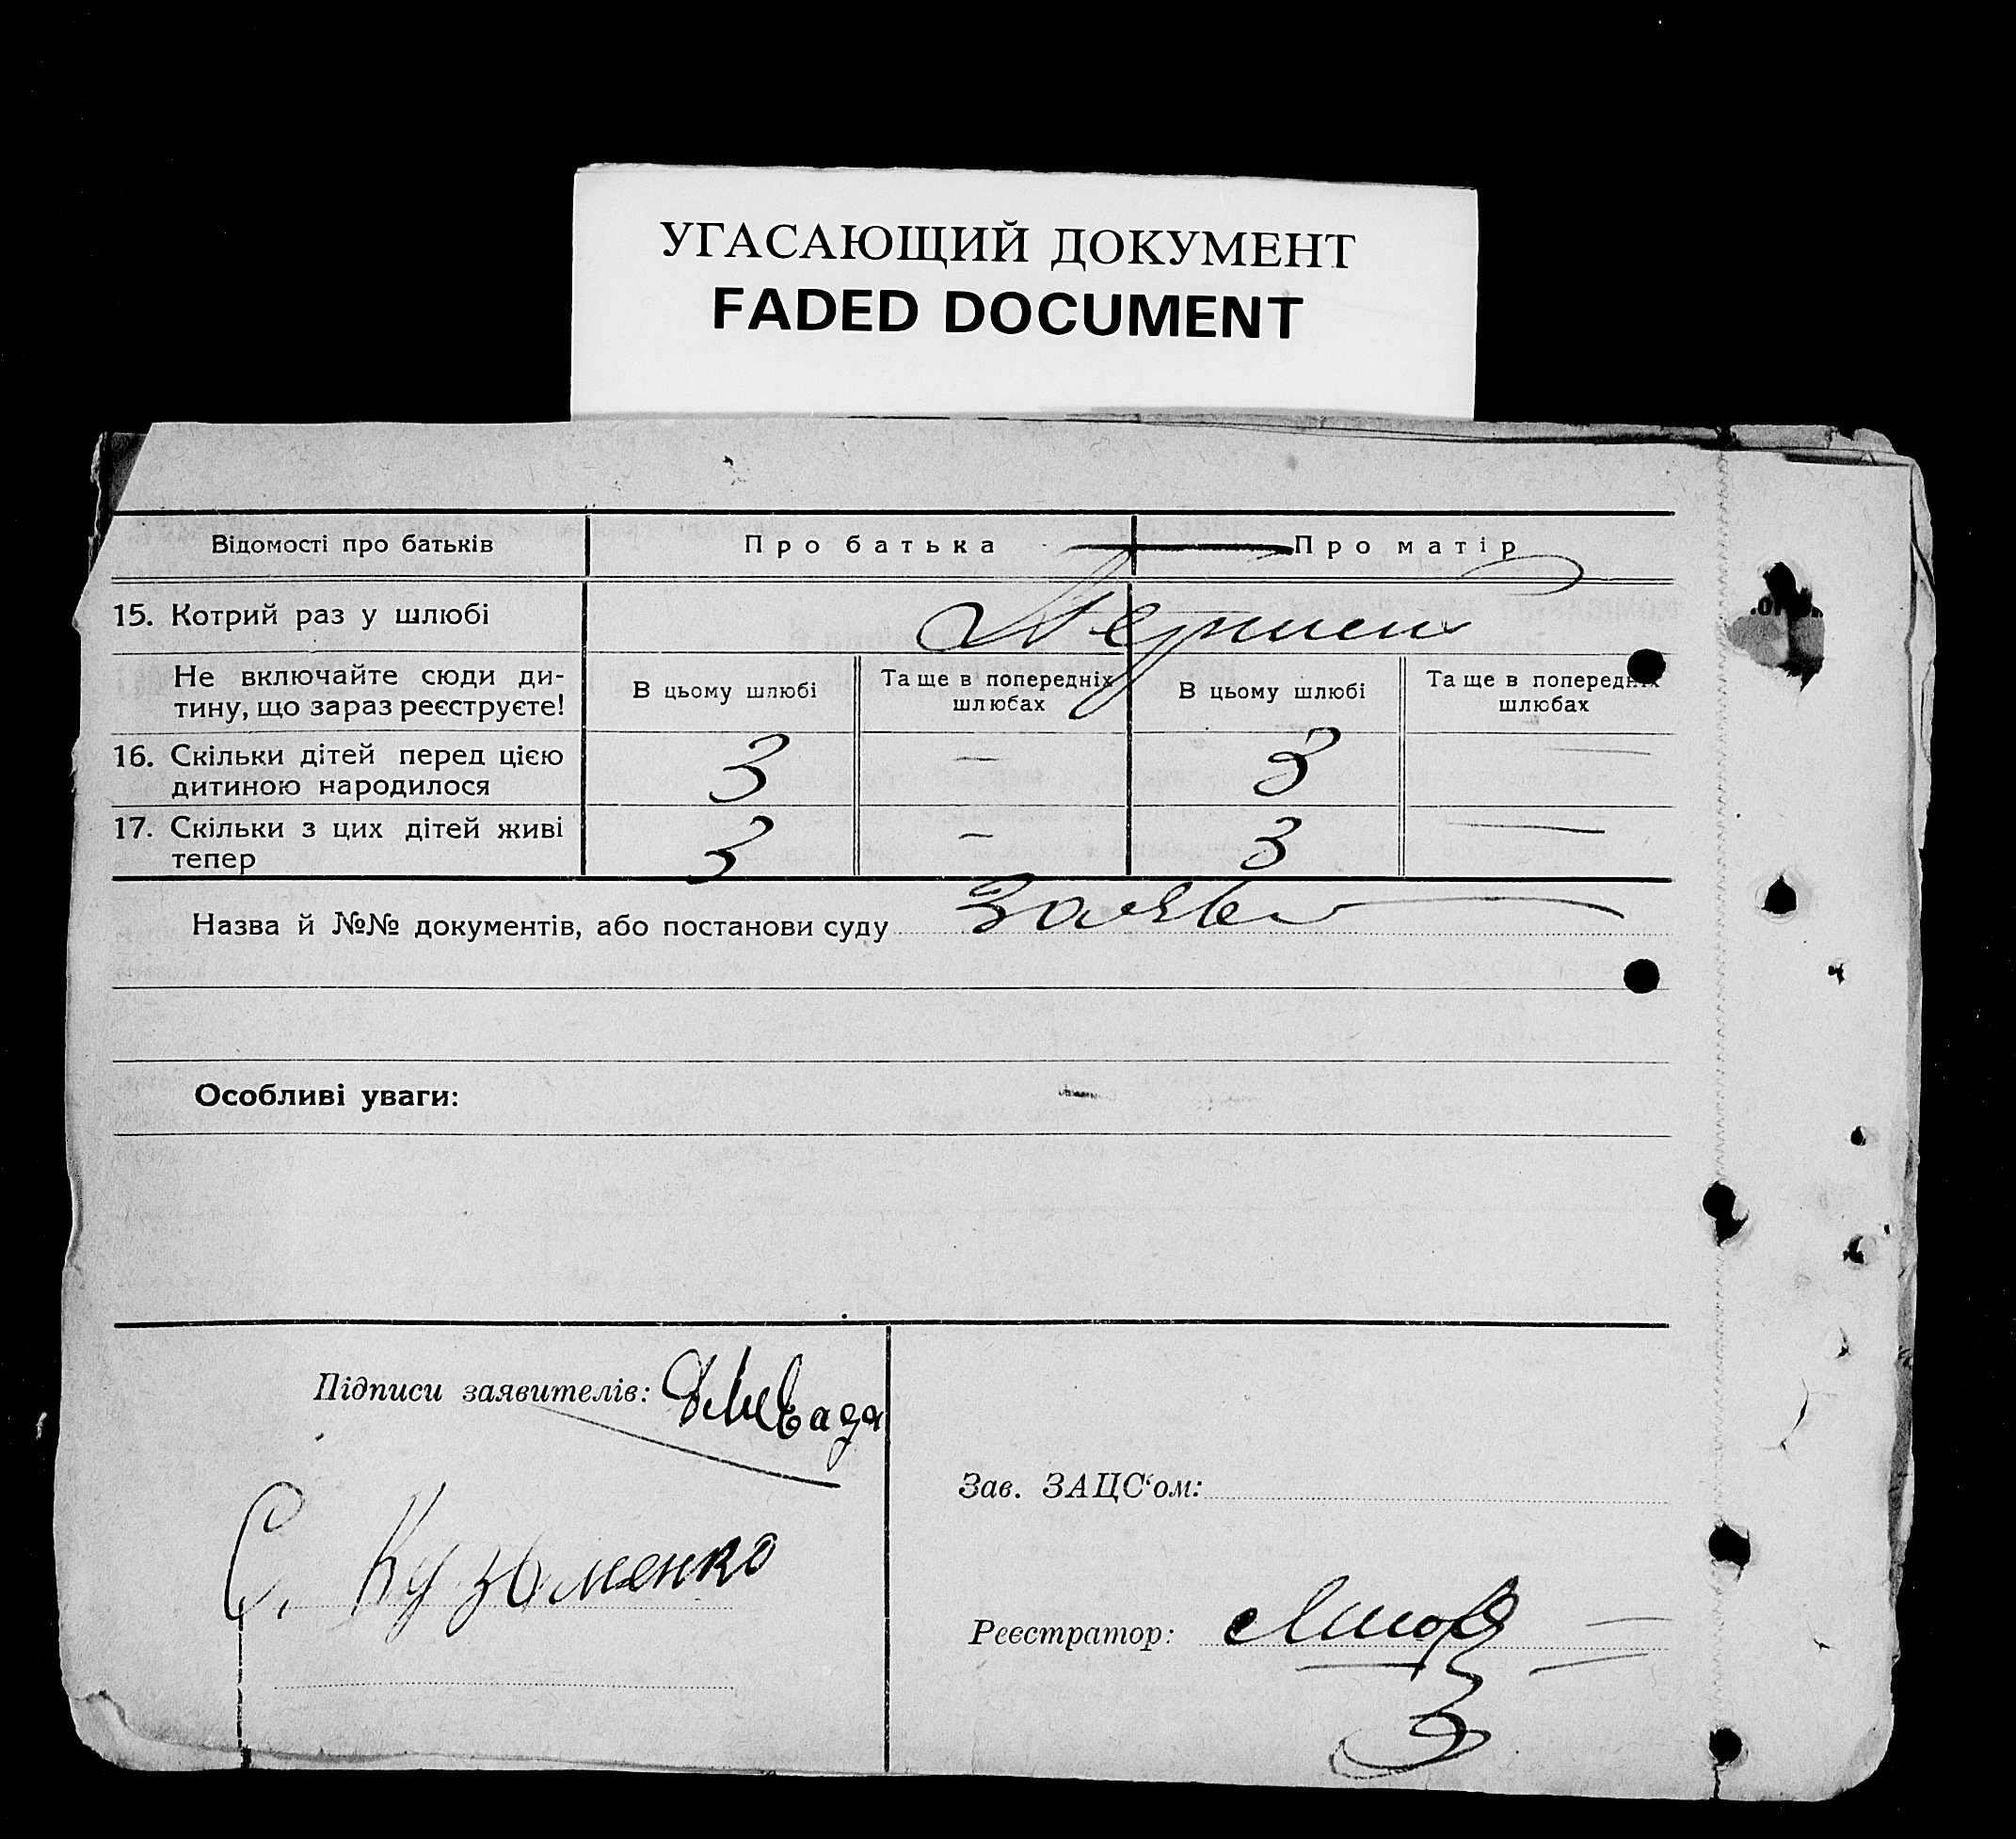 УГАСАЮЩИЙ ДОКУМЕНТ
FADED DOCUMENT
Відомості про батьків Про батька Про матір
15. Котрий раз у шлюбі
Не включайте сюди ди-
тину, що зараз реєструєте!
В цьому шлюбі Та ще в попередніх В цьому шлюбі Та ще в попередніх
шлюбах шлюбах
16. Скільки дітей перед цією
дитиною народилося 3 — 3 —
17. Скільки з цих дітей живі
тепер 3 — 3 —
Назва й №№ документів, або постанови суду
Особливі уваги: —
Підписи заявителів:
С. Кузьменко
Зав. ЗАЦС‘ом:
Реєстратор: